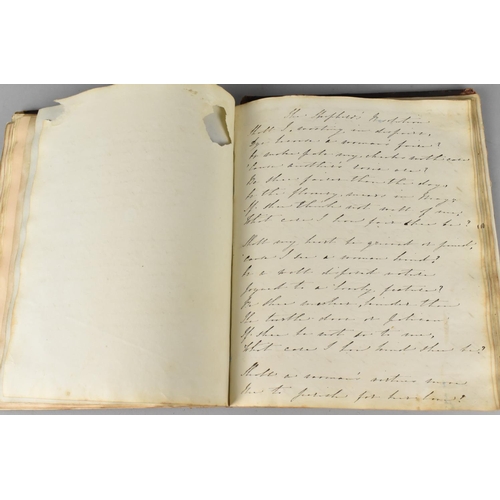 The Shepherd's Resolution
Shall I, wasting in despair,
Dye because a woman's faire?
Or make pale my cheeks with care
'Cause another's rosie are?
Be she fairer than the day,
Or the flowery meads in May;
If she think not well of me;
What care I how fair she be?
Shall my heart be grieved or pined
'Cause I see a woman kind?
Or a well disposed nature
Joyned to a lovely feature?
Be she meeker, kinder than
The turtle dove or pelican;
If she be not so to me,
What care I how kind she be?
Shall a woman's virtues move
Me to perish for her love?